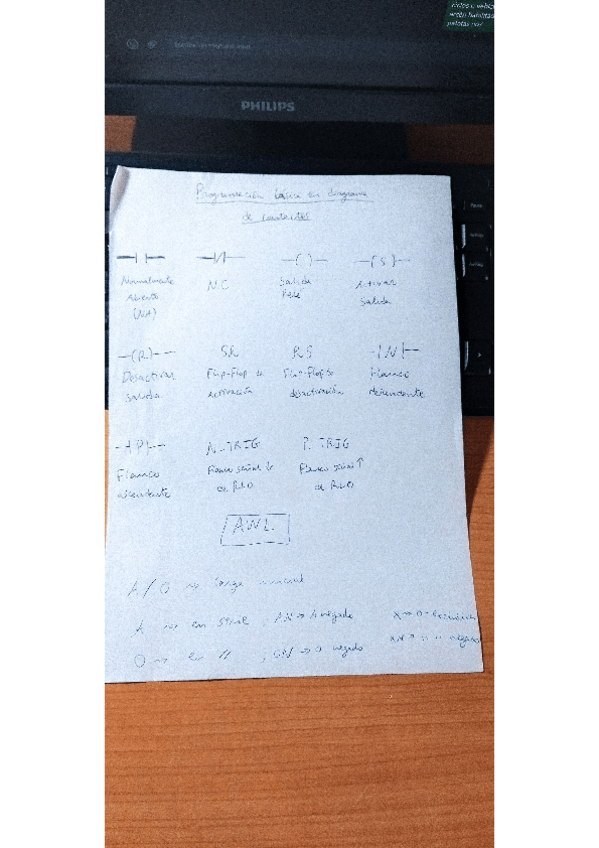 PHILIPS
Programación básica en diagrama
de contactos
Normalmente
Abierto
(NA)
NC
Salida
Activar
Salida
-( )-
-(S)-
-(R)-
Desactivar
Salida
SR
Flip-Flop de
activación
RS
Flip-Flop de
desactivación
-|N|-
Flanco
descendente
-|P|-
Flanco
ascendente
N_TRIG
Flanco señal ↓
de RLO
P_TRIG
Flanco señal ↑
de RLO
AWL
A/O → carga inicial
A → en serie, AN → A negado
X → O exclusiva
O → en //, ON → O negado
XN → " " negado